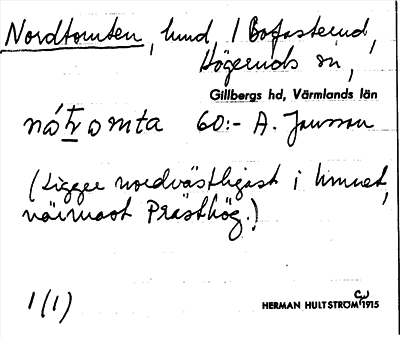 Nordtomten, hmd, 1 Bofasterud,
Högeruds sn,
Gillbergs hd, Värmlands län
nótromta 60:- A. Jansson
(Ligger nordvästligast i hmnet,
närmast Prästhög.)
1(1)
HERMAN HULTSTRÖM 1915